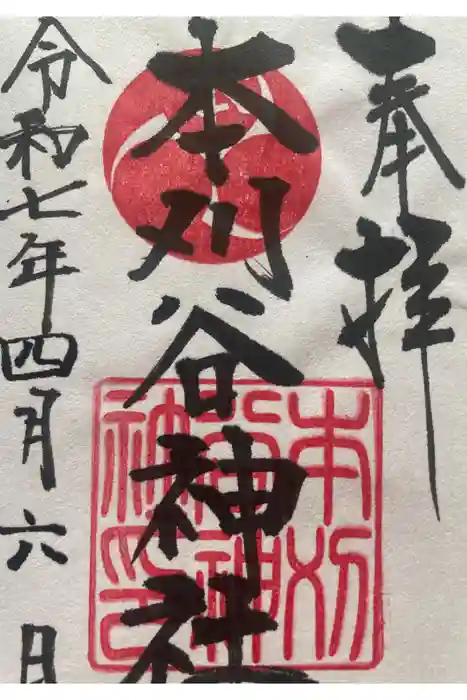 奉拝
本刈谷神社
本刈谷神社印
令和七年四月六日